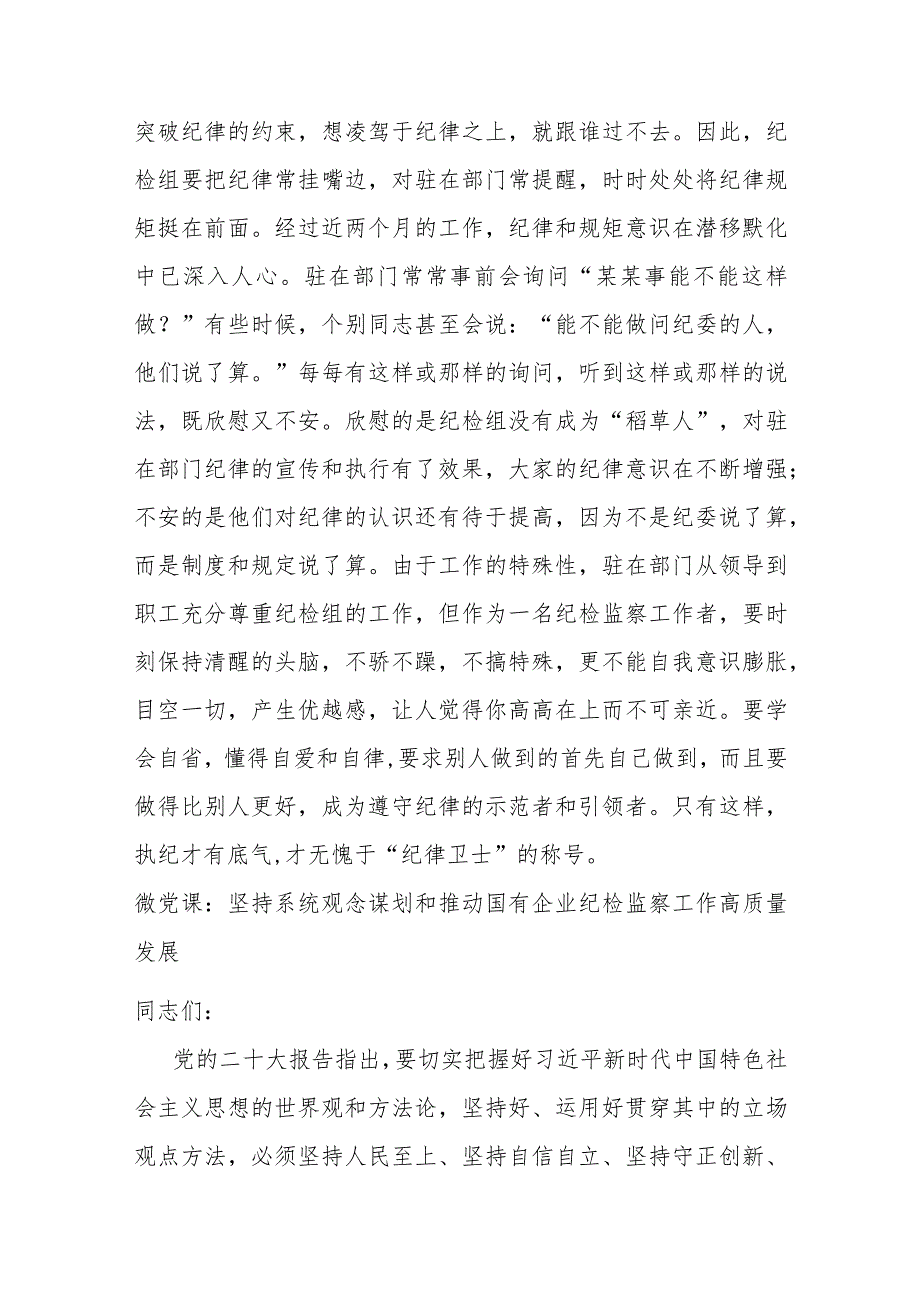 突破纪律的约束，想凌驾于纪律之上，就跟谁过不去。因此，纪
检组要把纪律常挂嘴边，对驻在部门常提醒，时时处处将纪律规
矩挺在前面。经过近两个月的工作，纪律和规矩意识在潜移默化
中已深入人心。驻在部门常常事前会询问“某某事能不能这样
做？”有些时候，个别同志甚至会说：“能不能做问纪委的人，
他们说了算。”每每有这样或那样的询问，听到这样或那样的说
法，既欣慰又不安。欣慰的是纪检组没有成为“稻草人”，对驻
在部门纪律的宣传和执行有了效果，大家的纪律意识在不断增强；
不安的是他们对纪律的认识还有待于提高，因为不是纪委说了算，
而是制度和规定说了算。由于工作的特殊性，驻在部门从领导到
职工充分尊重纪检组的工作，但作为一名纪检监察工作者，要时
刻保持清醒的头脑，不骄不躁，不搞特殊，更不能自我意识膨胀，
目空一切，产生优越感，让人觉得你高高在上而不可亲近。要学
会自省，懂得自爱和自律,要求别人做到的首先自己做到，而且要
做得比别人更好，成为遵守纪律的示范者和引领者。只有这样，
执纪才有底气,才无愧于“纪律卫士”的称号。
微党课：坚持系统观念谋划和推动国有企业纪检监察工作高质量
发展
同志们：
党的二十大报告指出,要切实把握好习近平新时代中国特色社
会主义思想的世界观和方法论，坚持好、运用好贯穿其中的立场
观点方法，必须坚持人民至上、坚持自信自立、坚持守正创新、